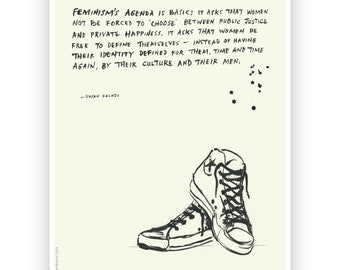 FEMINISM'S AGENDA IS BASIC: IT ASKS THAT WOMEN
NOT BE FORCED TO 'CHOOSE' BETWEEN PUBLIC JUSTICE
AND PRIVATE HAPPINESS. IT ASKS THAT WOMEN BE
FREE TO DEFINE THEMSELVES — INSTEAD OF HAVING
THEIR IDENTITY DEFINED FOR THEM, TIME AND TIME
AGAIN, BY THEIR CULTURE AND THEIR MEN.
— SUSAN FALUDI